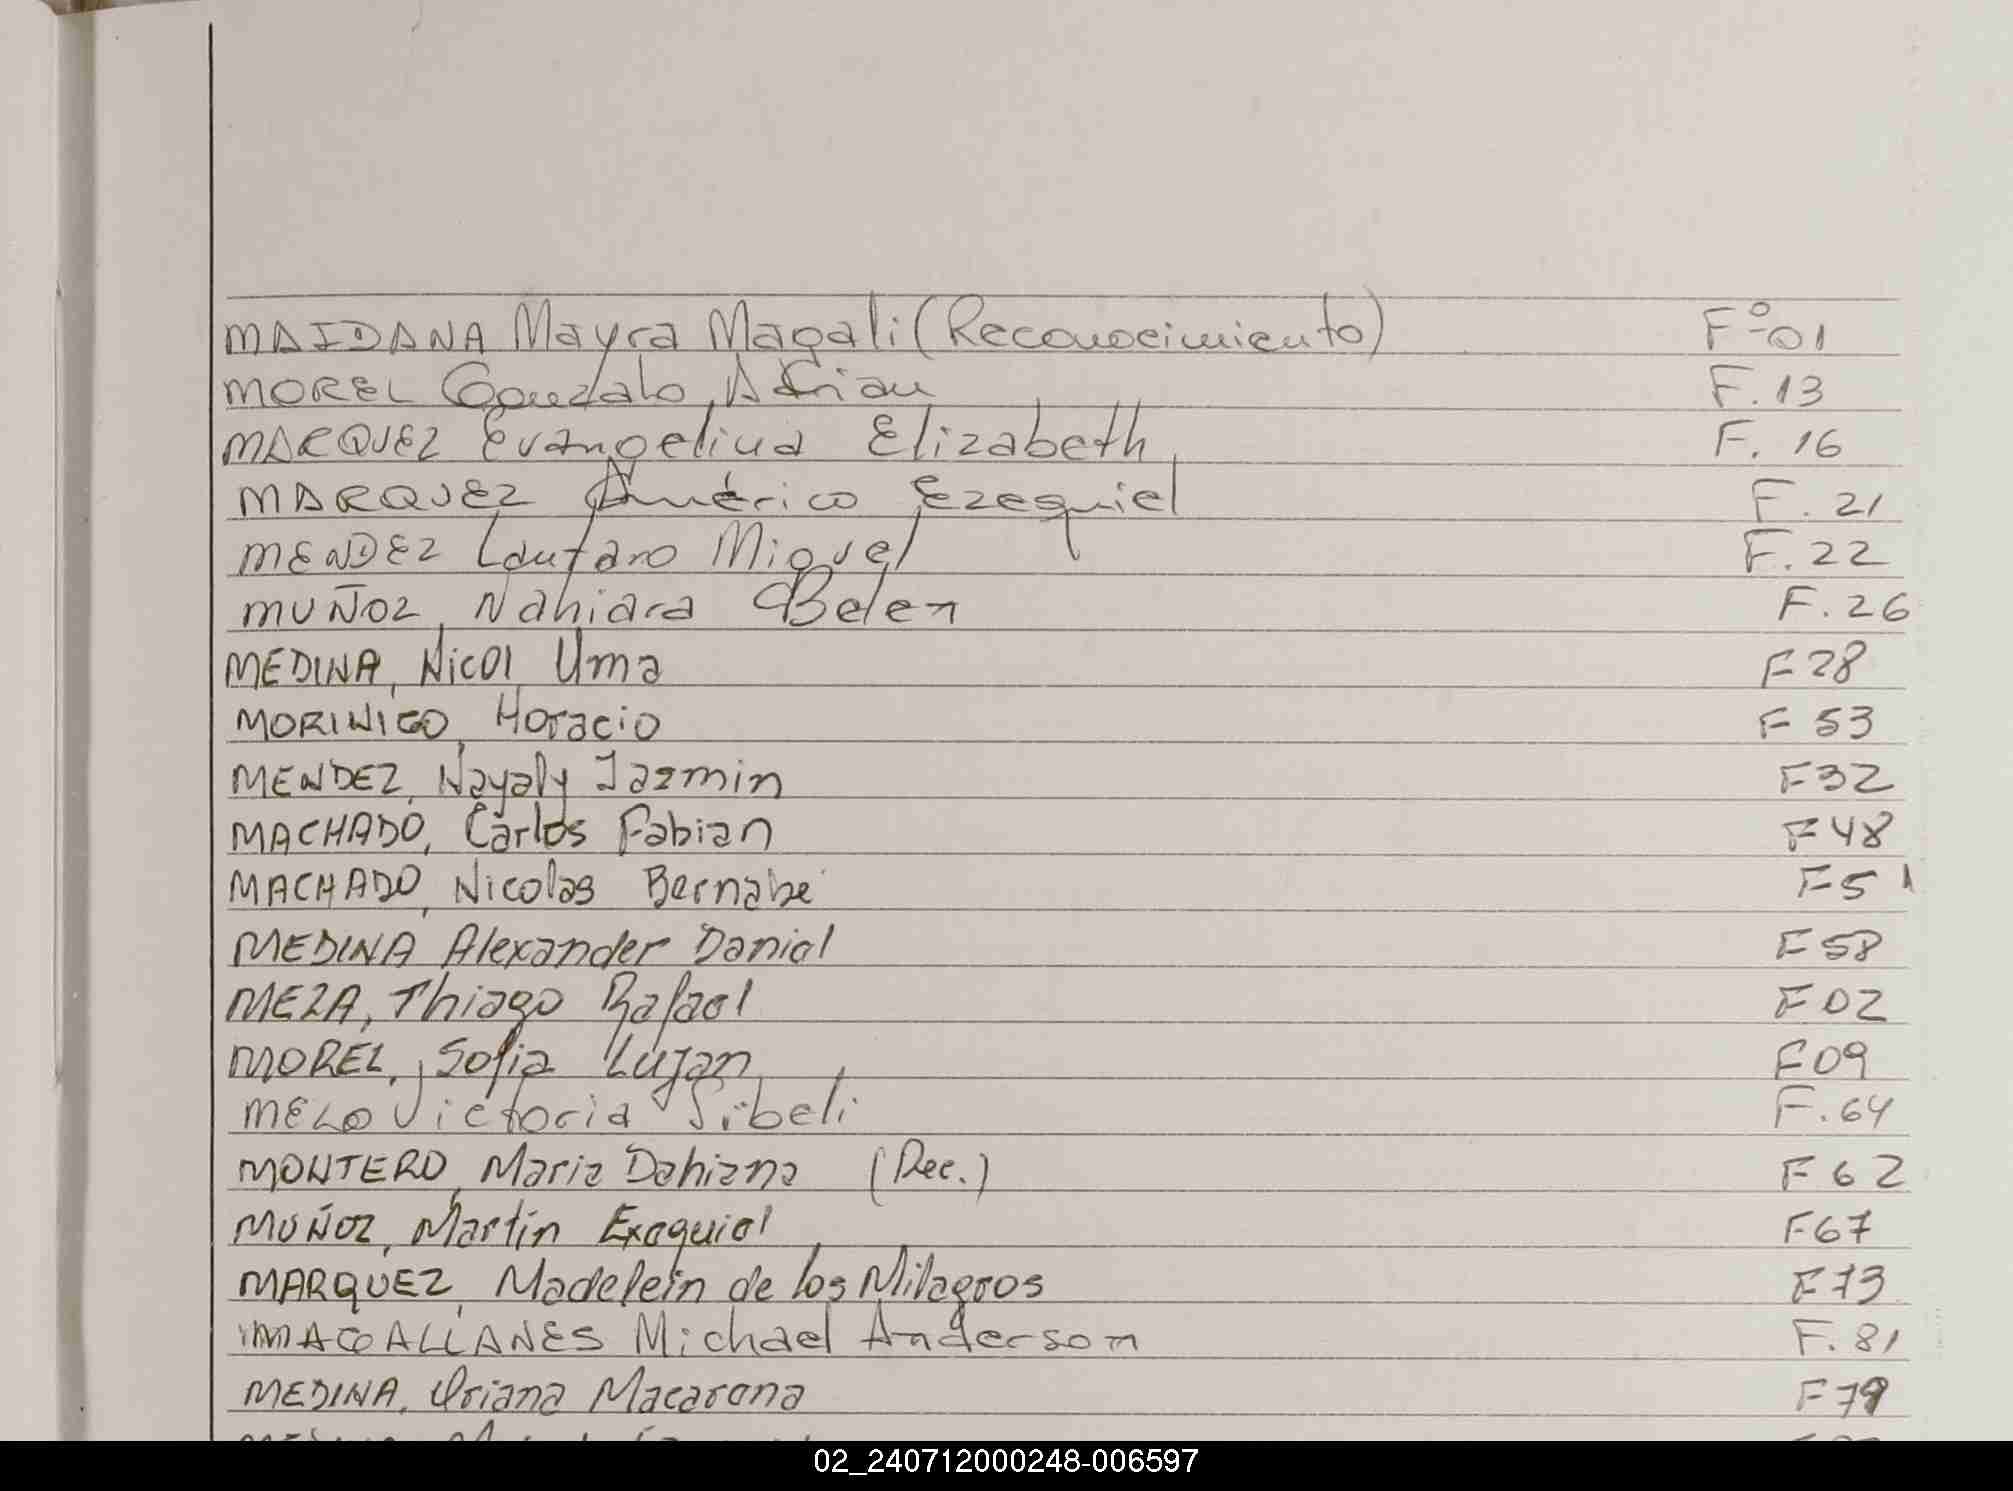 MAIDANA Mayra Magali (Reconocimiento) Fº01
MOREL Gonzalo Adrian F.13
MARQUEZ Evangelina Elizabeth F. 16
MARQUEZ Américo Ezequiel F. 21
MENDEZ Lautaro Miguel F. 22
MUÑOZ, Nahiara Belen F. 26
MEDINA, Nicol Uma F28
MORINIGO, Horacio F 53
MENDEZ, Nayaly Jazmin F32
MACHADO, Carlos Fabian F48
MACHADO, Nicolas Bernabe F51
MEDINA Alexander Daniel F58
MEZA, Thiago Rafael F02
MOREL, Sofia Lujan F09
MELO Victoria Sibeli F.64
MONTERO, Maria Dahiana (Rec.) F62
MUÑOZ, Martín Exequiel F67
MARQUEZ, Madelein de los Milagros F73
MAGALLANES Michael Anderson F. 81
MEDINA, Oriana Macarena F79
02_240712000248-006597